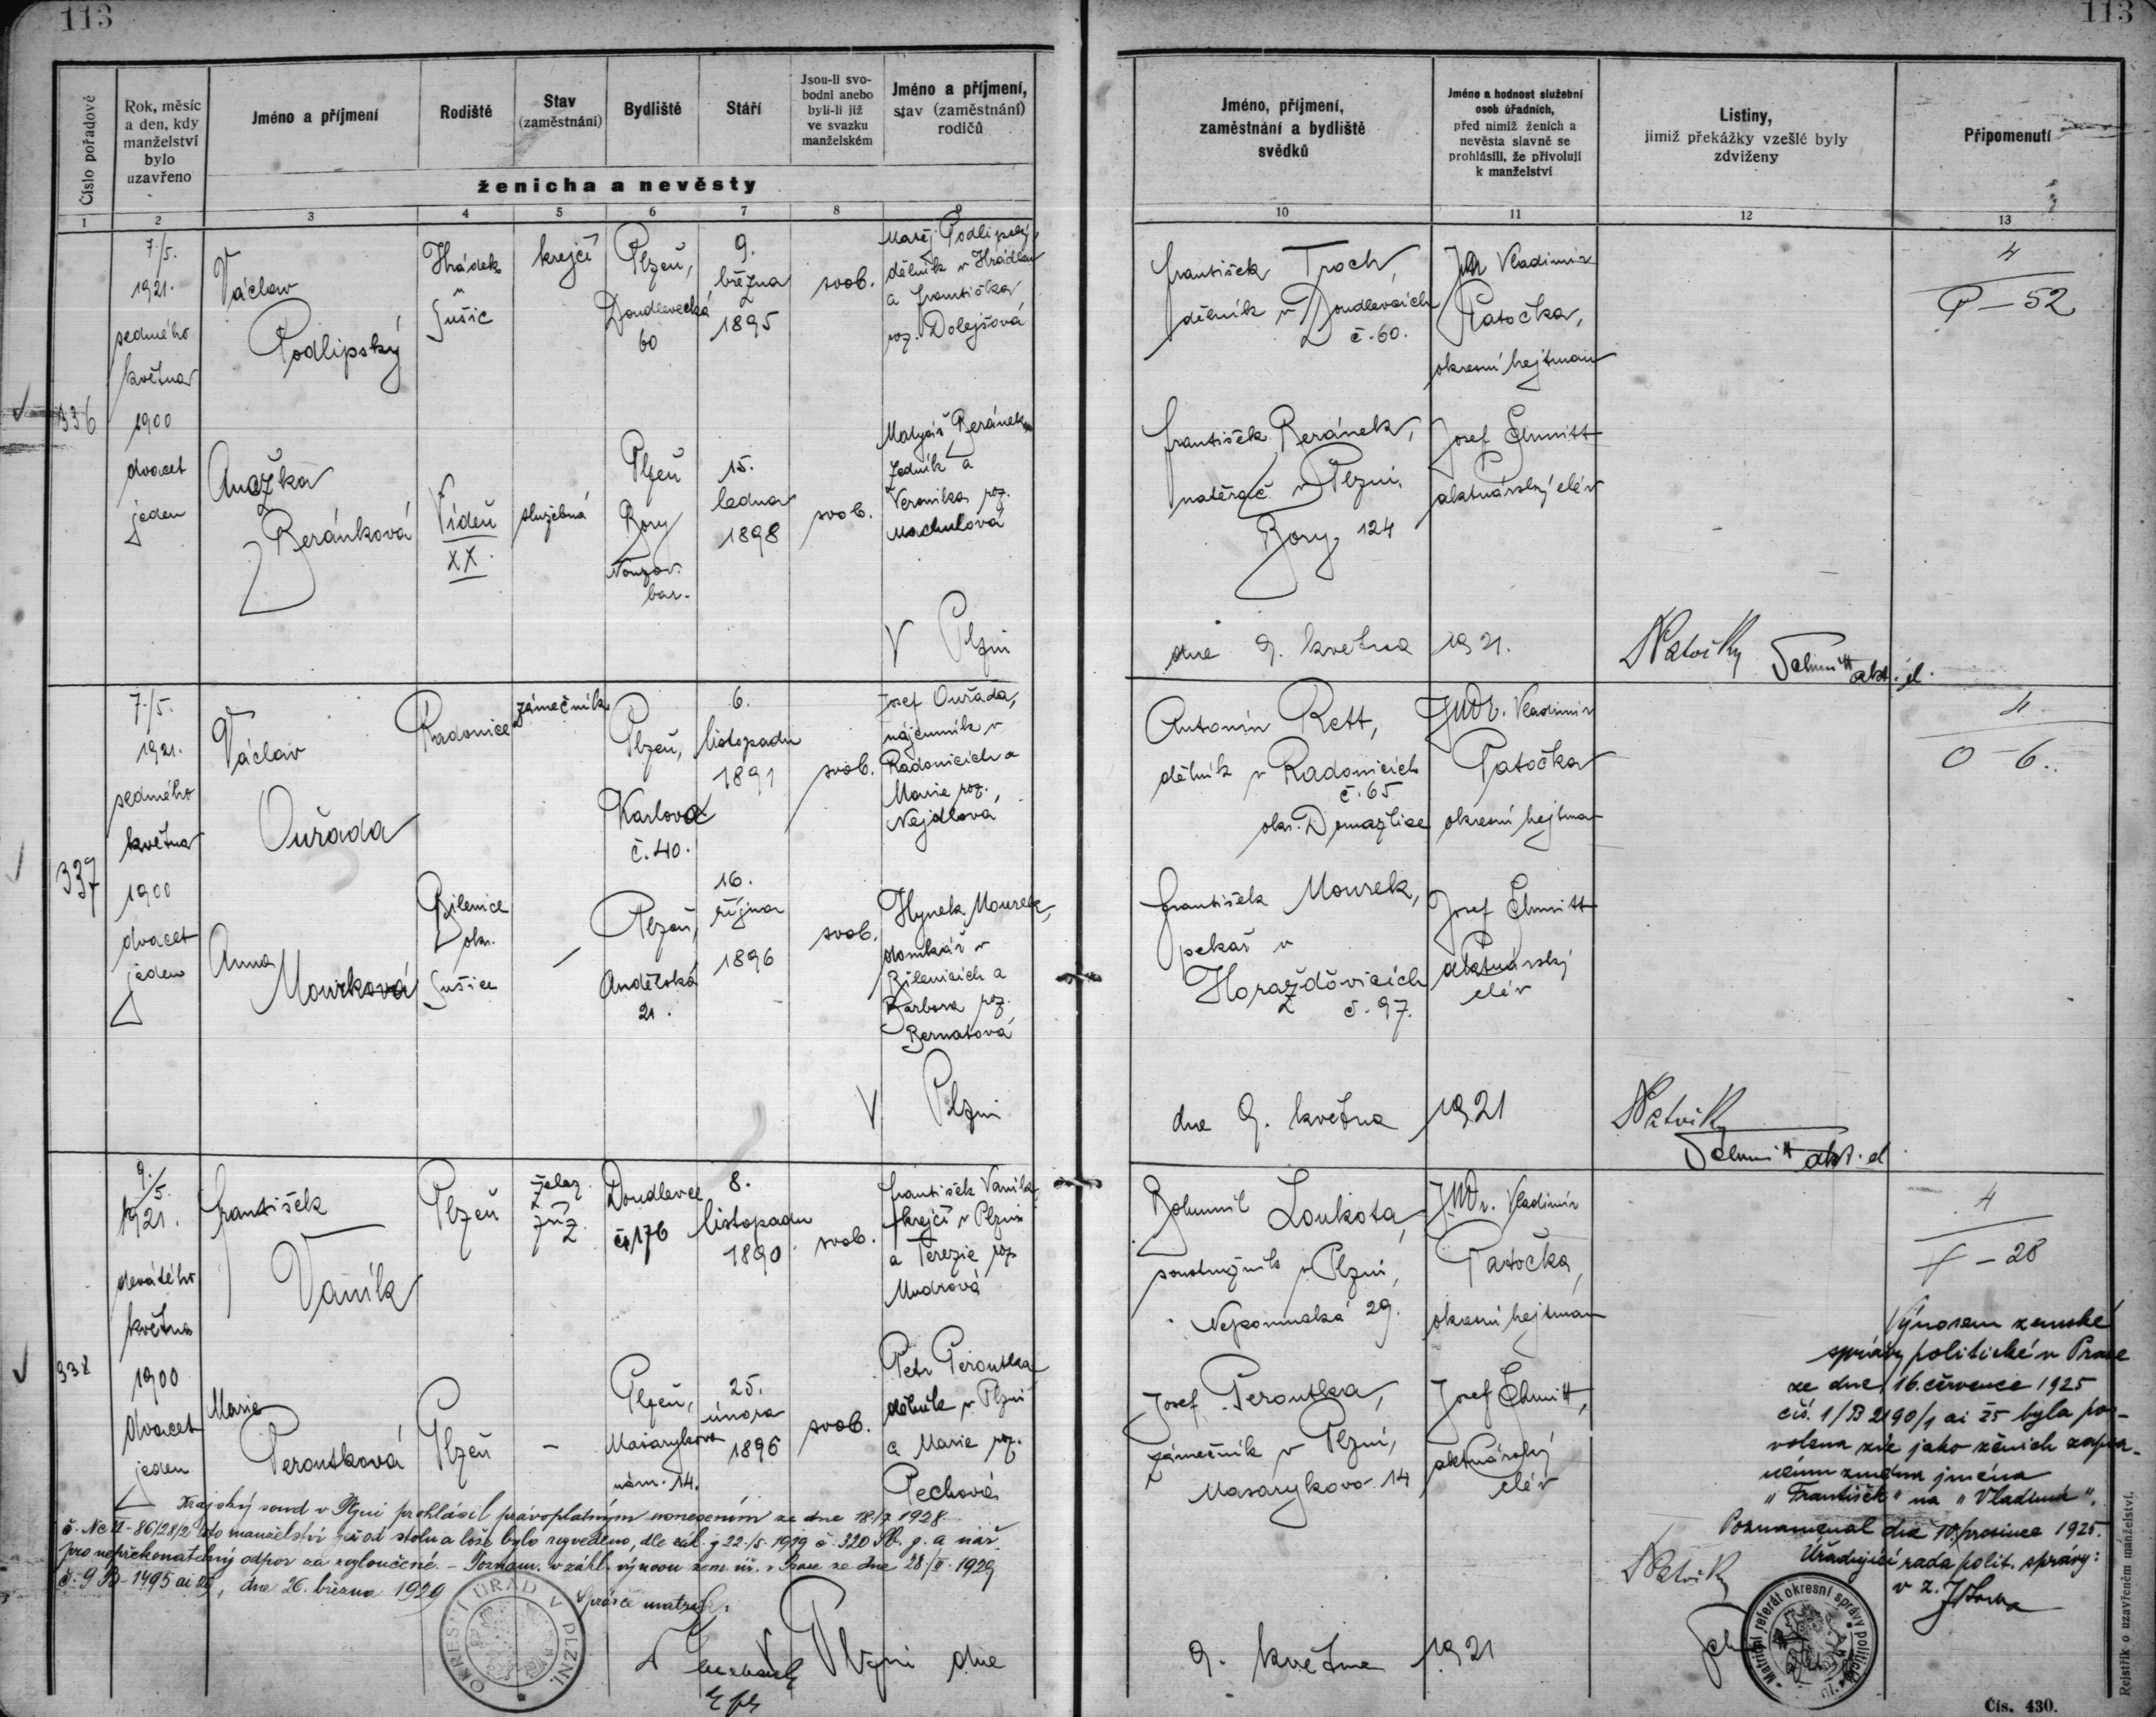 113
113
Číslo pořadové
Rok, měsíc
a den, kdy
manželství
bylo
uzavřeno
Jméno a příjmení
Rodiště
Stav
(zaměstnání)
Bydliště
Stáří
Jsou-li svo-
bodni anebo
byli-li již
ve svazku
manželském
Jméno a příjmení,
stav (zaměstnání)
rodičů
ženicha a nevěsty
Jméno, příjmení,
zaměstnání a bydliště
svědků
Jméno a hodnost služební
osob úřadních,
před nimiž ženich a
nevěsta slavně se
prohlásili, že přivolují
k manželství
Listiny,
jimiž překážky vzešlé byly
zdviženy
Připomenutí
1 2 3 4 5 6 7 8 9 10 11 12 13
336
7./5.
1921.
sedmého
května
1900
dvacet
jeden
Václav
Podlipský
Hrádek
u
Sušic
krejčí
Plzeň,
Doudlevecká
60
9.
března
1895
svob.
Matěj Podlipský,
dělník v Hrádku
a Františka
roz. Dolejšová
František Troch,
dělník v Doudlevcích
č. 60.
Vladimír
Patočka,
okresní hejtman
4
P – 52
Anežka
Beránková
Vídeň
XX.
služebná
Plzeň
Bory
Nouzov.
bar.
15.
ledna
1898
svob.
Matyáš Beránek
zedník a
Veronika roz.
Machulová
František Beránek,
natěrač v Plzni,
Bory 124
Josef Schmitt
aktuárský elév
V Plzni
dne 9. května 1921.
Schmitt akt. el.
337
7./5.
1921.
sedmého
května
1900
dvacet
jeden
Václav
Ouřada
Radonice
zámečník
Plzeň,
Karlova
č. 40.
6.
listopadu
1891
svob.
Josef Ouřada,
nájemník v
Radonicích a
Marie roz.
Nejdlová
Antonín Rett,
dělník v Radonicích
č. 65
okr. Domažlice
JUDr. Vladimír
Patočka
okresní hejtman
4
O – 6.
Anna
Mourková
Bilenice
okr.
Sušice
–
Plzeň,
Andělská
21.
16.
října
1896
svob.
Hynek Mourek,
domkář v
Bilenicích a
Barbora roz.
Bernatová
František Mourek,
pekař v
Horažďovicích
č. 97.
Josef Schmitt
aktuárský
elév
V Plzni
dne 9. května 1921
Schmitt akt. el.
338
9./5.
1921.
devátého
května
1900
dvacet
jeden
František
Vaník
Plzeň
želez.
zříz.
Doudlevce
č. 176
8.
listopadu
1890
svob.
František Vaník,
krejčí v Plzni
a Terezie roz.
Mudrová
Bohumil Loukota,
soustružník v Plzni,
Nepomucká 29.
JUDr. Vladimír
Patočka,
okresní hejtman
4
– 28
Marie
Peroutková
Plzeň
–
Plzeň,
Masarykovo
nám. 14.
25.
února
1896
svob.
Petr Peroutka
dělník v Plzni
a Marie roz.
Pechová
Josef Peroutka,
zámečník v Plzni,
Masarykovo 14
Josef Schmitt,
aktuárský
elév
Výnosem zemské
správy politické v Praze
ze dne 16. července 1925
čís. 1/B 2190/1 ai 25 byla po-
volena zde jako ženich zapsa-
nému změna jména
„František“ na „Vladimír“.
Poznamenal dne 10. prosince 1925.
Úřadující rada polit. správy:
v z.
Krajský soud v Plzni prohlásil právoplatným usnesením ze dne 18/7 1928
č. Nc II-86/28/2 toto manželství jež od stolu a lože bylo rozvedeno, dle zák. z 22./5. 1919 č. 320 Sb. z. a nař.
pro nepřekonatelný odpor za rozloučené. – Poznam. v zákl. výnosu zem. úř. v Praze ze dne 28/II. 1929
č. 9 B-1495 ai 29, dne 26. března 1929
Správce matrik:
OKRESNÍ ÚŘAD V PLZNI.
V Plzni dne
9. května 1921
Matriční referát okresní správy politické
Rejstřík o uzavřeném manželství.
Čís. 430.